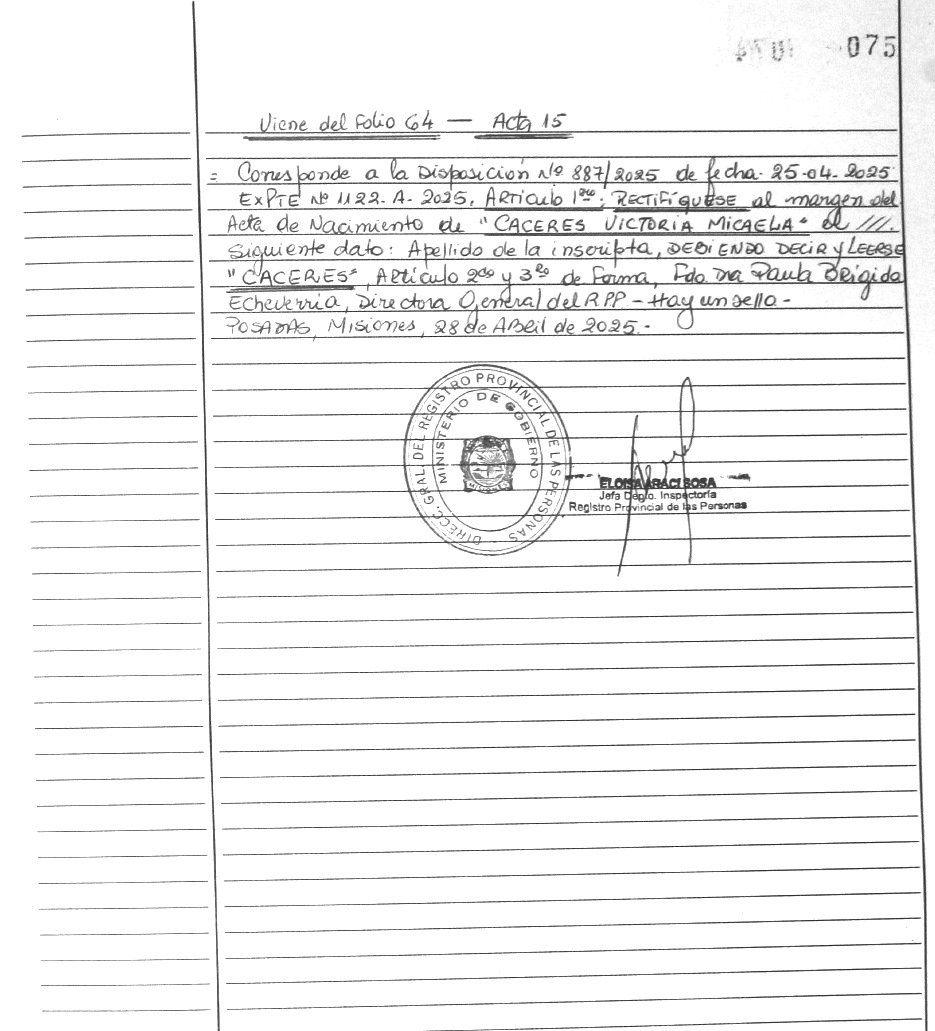 075
Viene del Folio 64 — Acta 15
= Corresponde a la Disposición Nº 887/2025 de fecha 25-04-2025
EXPTE Nº 1122-A-2025, Artículo 1ero; RECTIFÍQUESE al margen del
Acta de Nacimiento de "CACERES VICTORIA MICAELA" el ///.
Siguiente dato: Apellido de la inscripta, DEBIENDO DECIR y LEERSE
"CACERES", Artículo 2do y 3ero de Forma, Fdo. Dra Paula Brigida
Echeverria, Directora General del R.P.P - Hay un sello -
POSADAS, Misiones, 28 de Abril de 2025.-
DIRECC. GRAL. DEL REGISTRO PROVINCIAL DE LAS PERSONAS -
MINISTERIO DE GOBIERNO
ELOISA ARACI SOSA
Jefa Depto. Inspectoría
Registro Provincial de las Personas